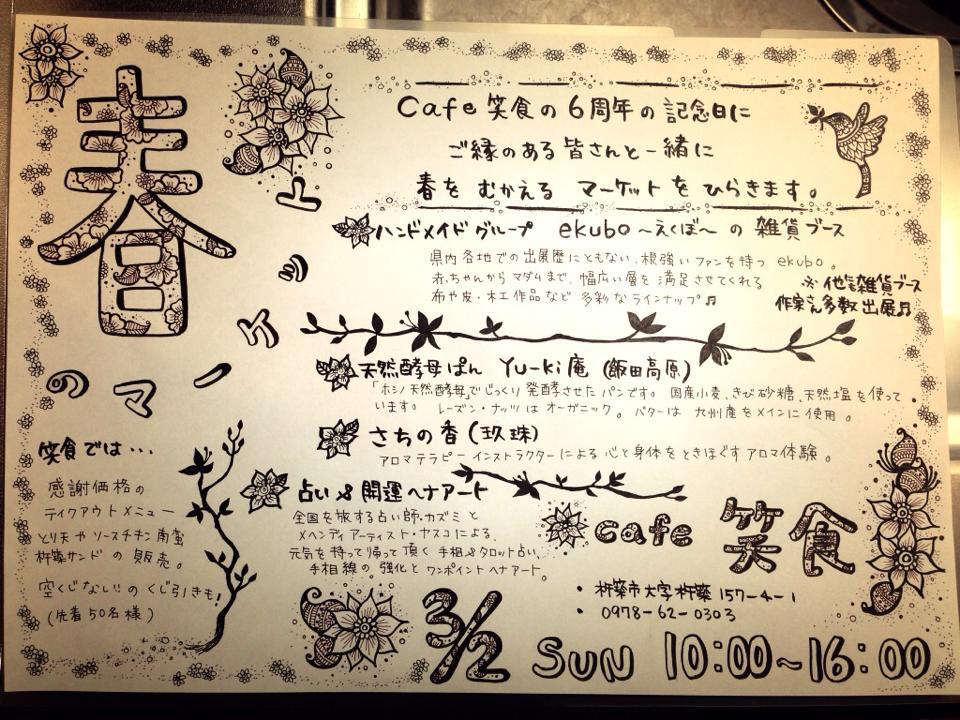 春
のマーケット
Cafe 笑食の6周年の記念日に
ご縁のある皆さんと一緒に
春を むかえる マーケットを ひらきます。
ハンドメイドグループ ekubo〜えくぼ〜の 雑貨ブース
県内各地での出展歴にともない、根強いファンを持つ ekubo。
赤ちゃんからマダムまで、幅広い層を満足させてくれる
布や皮・木工作品など 多彩なラインナップ♬
※他に雑貨ブース
作家さん多数出展♬
天然酵母ぱん Yu-ki庵 (飯田高原)
「ホシノ天然酵母」でじっくり発酵させたパンです。国産小麦、きび砂糖、天然塩を使って
います。 レーズン・ナッツはオーガニック。バターは 九州産をメインに使用。
さちの香(玖珠)
アロマテラピーインストラクターによる 心と身体をときほぐす アロマ体験。
占い&開運ヘナアート
全国を旅する占い師・カズミと
メヘンディアーティスト・ヤスコによる、
元気を持って帰って頂く 手相&タロット占い、
手相線の強化と ワンポイントヘナアート。
笑食では・・・
感謝価格の
テイクアウトメニュー
とり天やソースチキン南蛮
杵築サンドの販売。
空くじなし!!のくじ引きも!
(先着50名様)
cafe 笑食
・杵築市大字杵築 157-4-1
・0978-62-0303
3/2 SUN 10:00~16:00